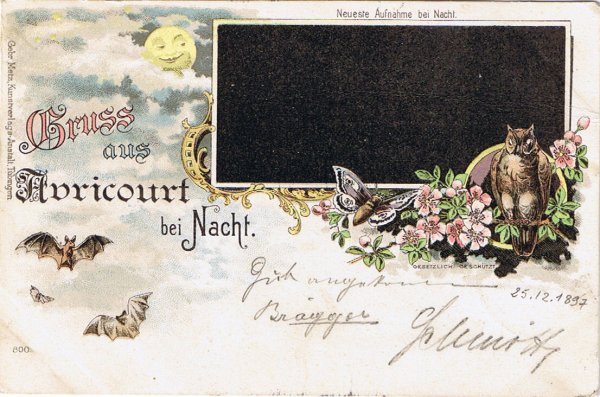 Neueste Aufnahme bei Nacht.
Gruss
aus
Avricourt
bei Nacht.
Gebr. Metz, Kunstverlags-Anstalt, Tübingen.
GESETZLICH GESCHÜTZT
Gut angekommen
25.12.1897
Brägger
800.